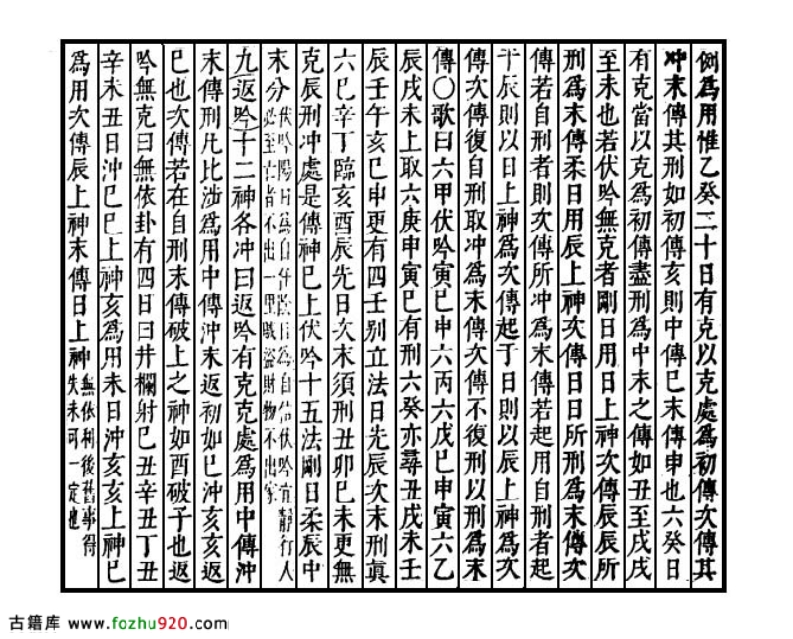 例爲用惟乙癸二十日有克以克處爲初傳次傳其
冲末傳其刑如初傳亥則中傳巳末傳申也六癸日
有克當以克爲初傳盡刑爲中末之傳如丑至戌戌
至未也若伏吟無克者剛日用日上神次傳辰辰所
刑爲末傳柔日用辰上神次傳日日所刑爲末傳次
傳若自刑者則次傳所冲爲末傳若起用自刑者起
于辰則以日上神爲次傳起于日則以辰上神爲次
傳次傳復自刑取冲爲末傳次傳不復刑以刑爲末
傳〇歌曰六甲伏吟寅巳申六丙六戊巳申寅六乙
辰戌未上取六庚申寅巳有刑六癸亦尋丑戌未壬
辰壬午亥巳申更有四壬别立法日先辰次末刑眞
六巳辛丁臨亥酉辰先日次末須刑丑卯巳未更無
克辰刑冲處是傳神巳上伏吟十五法剛日柔辰中
末分伏吟陽日爲自任陰日爲自信伏吟宜靜行人必至亡者不出一里賊盜財物不出家
九返吟十二神各冲曰返吟有克克處爲用中傳沖
末傳刑凡比涉爲用中傳沖末返初如巳沖亥亥返
巳也次傳若在自刑末傳破上之神如酉破子也返
吟無克曰無依卦有四日曰井欄射巳丑辛丑丁丑
辛未丑日沖巳巳上神亥爲用未日沖亥亥上神巳
爲用次傳辰上神末傳日上神無依利後舊事得失未可一定也
古籍库 www.fozhu920.com